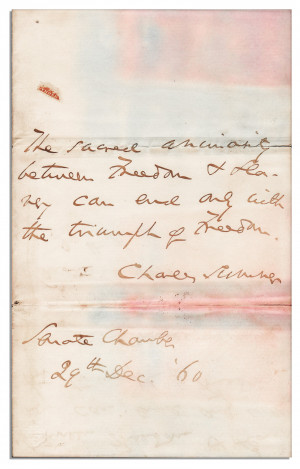 The sacred animosity
between Freedom & Sla-
very can end only with
the triumph of Freedom.
Charles Sumner
Senate Chamber
29th Dec. '60